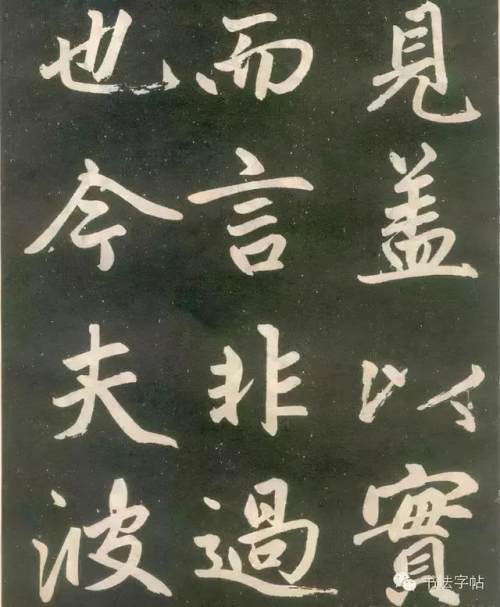 見盖以實
而言非過
也今夫波
书法字帖